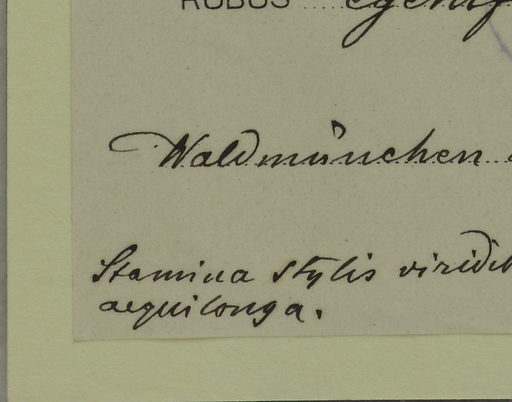 RUBUS
Waldmünchen
Stamina stylis viridib
aequilonga.